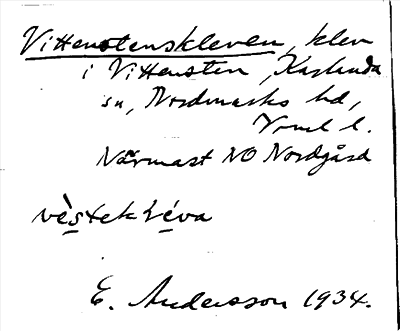 Vittenstenskleven, klev
i Vittensten, Karlanda
sn, Nordmarks hd,
Vrml l.
Närmast NO Nordgård
E. Andersson 1934.